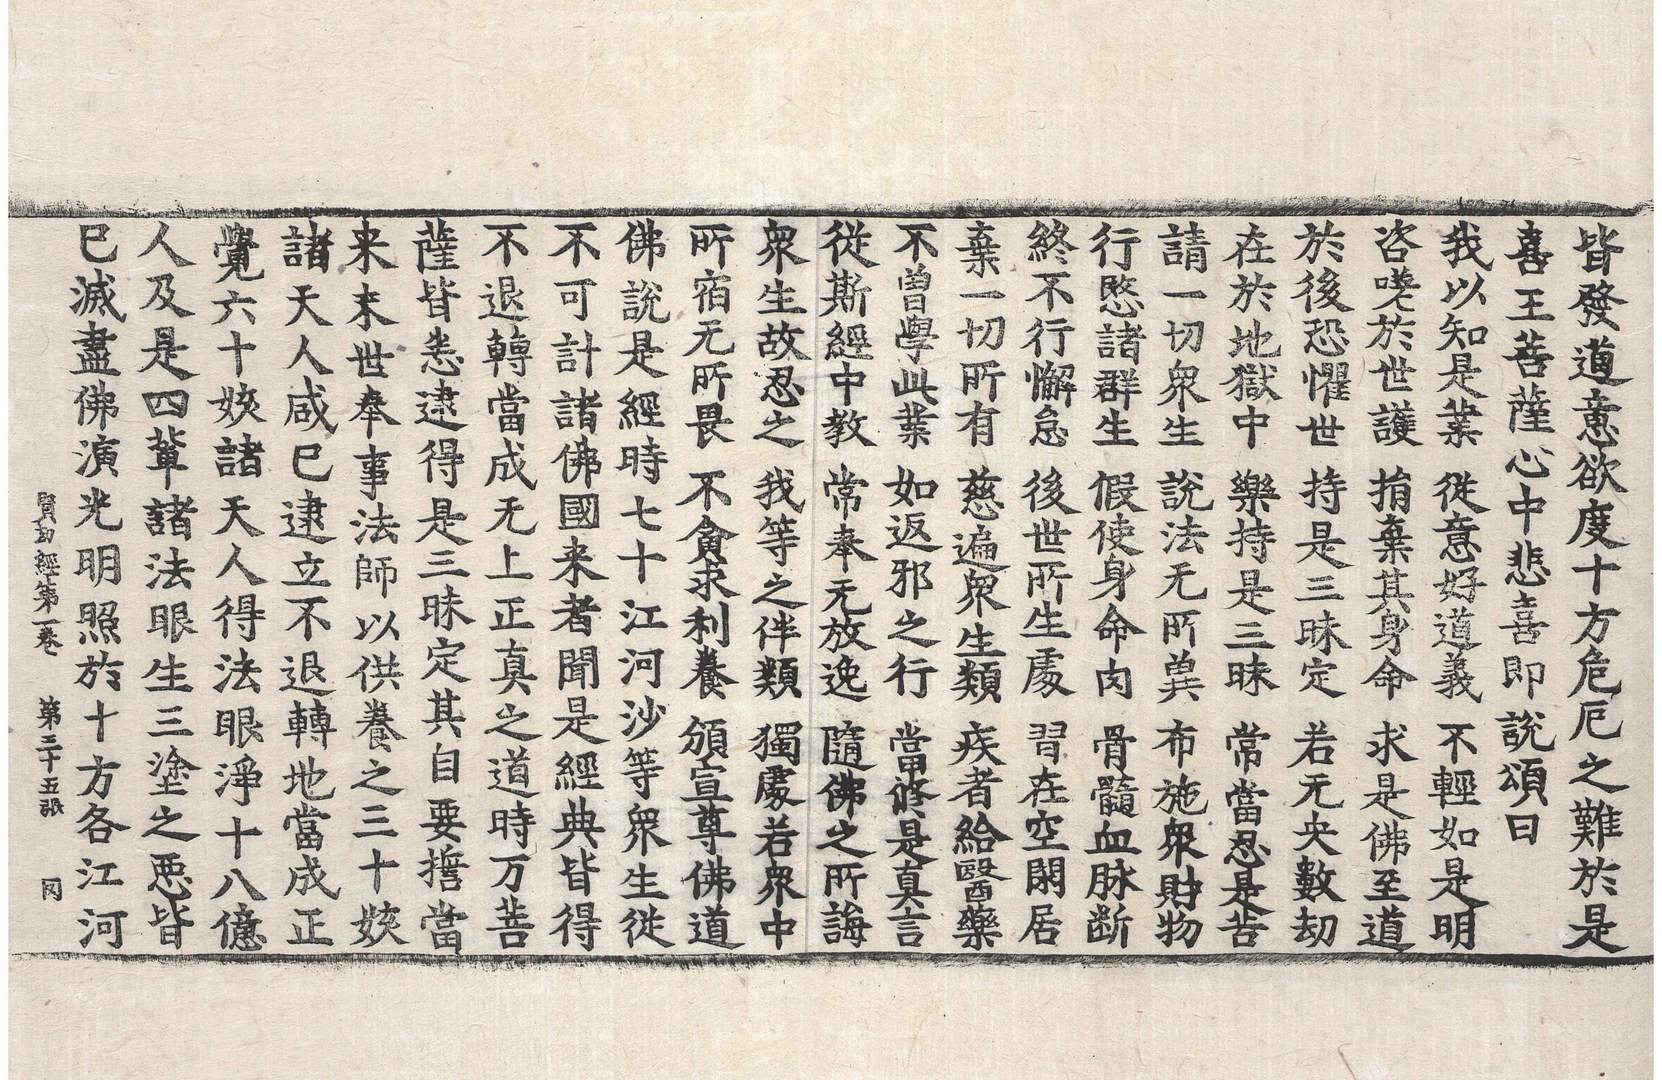 皆發道意欲度十方危厄之難於是
喜王菩薩心中悲喜即說頌曰
我以知是業 從意好道義 不輕如是明
咨嗟於世護 捐棄其身命 求是佛至道
於後恐懼世 持是三昧定 若无央數劫
在於地獄中 樂持是三昧 常當忍是苦
請一切衆生 說法无所兾 布施衆財物
行愍諸群生 假使身命肉 骨髓血脉断
終不行懈怠 後世所生處 習在空閑居
棄一切所有 慈遍衆生類 疾者給醫藥
不曾學此業 如返邪之行 當修是真言
從斯經中教 常奉无放逸 隨佛之所誨
衆生故忍之 我等之伴類 獨處若衆中
所宿无所畏 不貪求利養 頒宣尊佛道
佛說是經時七十江河沙等衆生從
不可計諸佛國来者聞是經典皆得
不退轉當成无上正真之道時万菩
薩皆悉逮得是三昧定其自要誓當
来末世奉事法師以供養之三十姟
諸天人咸已逮立不退轉地當成正
覺六十姟諸天人得法眼淨十八億
人及是四輩諸法眼生三塗之惡皆
已滅盡佛演光明照於十方各江河
賢劫經第一卷 第三十五張 罔